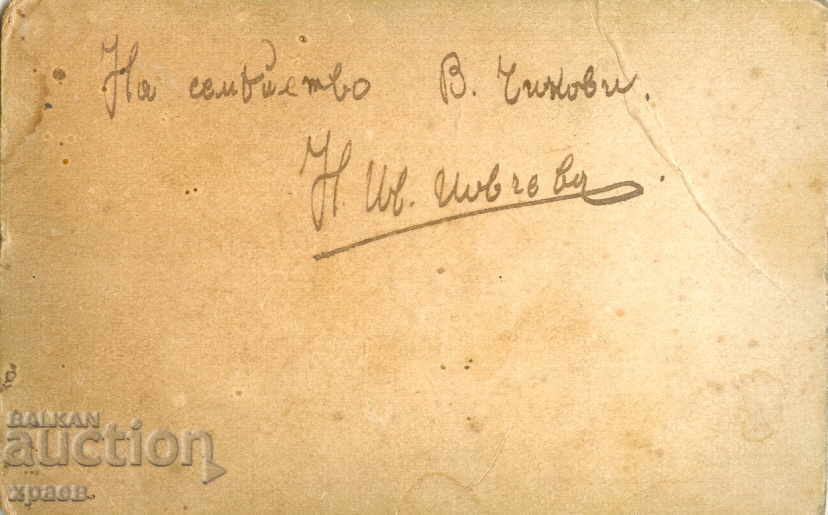 На семѣйство В. Чикови.
Н. Ив. Иовчева.
BALKAN
auction
храев